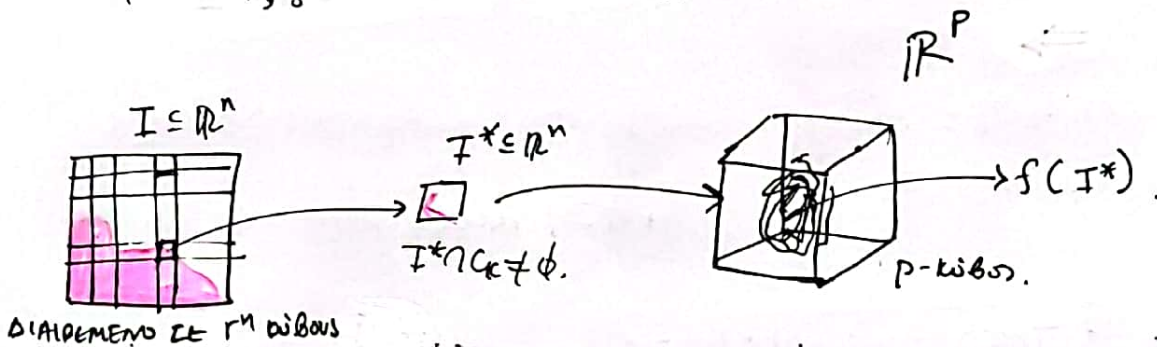 ℝᵖ
I ⊆ ℝⁿ
I* ⊆ ℝⁿ
f(I*)
I* ∩ Cₖ ≠ ∅.
p-κύβος.
ΔΙΑΙΡΕΜΕΝΟ ΣΕ rⁿ κύβους